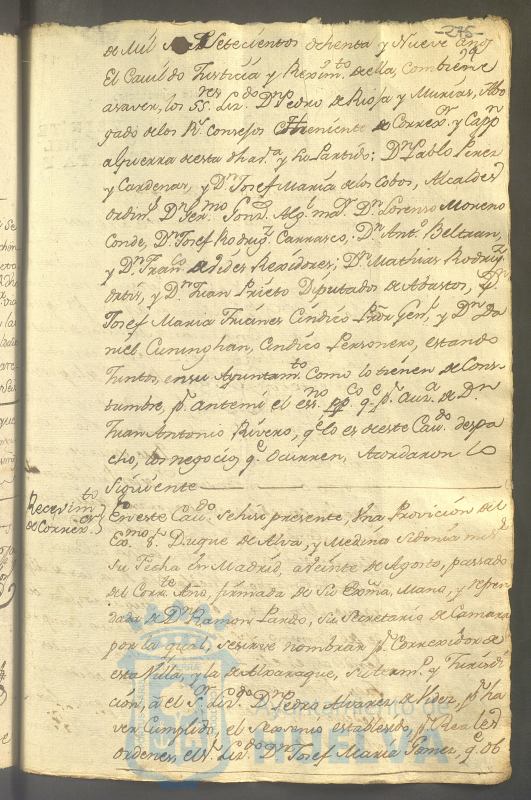 -275-
de Mil Setecientos ochenta y Nueve años
El Cavildo Justicia y Reximto. de ella, combiene
asaver, los SSres. Lizdo. Dn. Pedro de Rioja y Murias, Abo
gado de los Rs. Consejos theniente de Correxor. y Capn.
a Guerra de esta dha sa. y su Partido; Dn. Pablo Perez
y Cardenas, y Dn. Josef Maria de los Cobos, Alcaldes
ordins. Dn. Germo. Gonz. Algl. mor. Dn. Lorenzo Moreno
Conde, Dn. Josef Rodrigz. Carrasco, Dn. Anto. Beltran,
y Dn. Franco. de Rexidores, Dn. Mathias Rodrigz.
Ortis, y Dn. Juan Prieto Diputados de Abastos, Dn.
Josef Maria Trianes Cindico Pror. Genl. y Dn. Da
niel Cuninghan, Cindico Personero, estando
Juntos, en su Ayuntamto. Como lo tienen de Cons-
tumbre, pr. ante mi el essno. ppco. qe. pr. auxa. de Dn.
Juan Antonio Rivero, qe. lo es de este Cavdo. despa
cho, los negocios qe. ocurren, Acordaron lo
Siguiente
Recevimto.
de Correxor.
En este Cavdo. se hiso presente, Una Provicion del
Exmo. Sr. Duque de Alva, y Medina Sidonia mi Sr.
Su Fecha en Madrid, a Veinte de Agosto, passado
del Corrte. Año, firmada de Su Exma. Mano, y refren
dada de Dn. Ramon Pardo, Su Secretario de Camara
por la qual, se sirve nombrar pr. Correxidor de
esta Villa, y la de Aljaraque, su termo. y Jurisdi
cion, a el Sr. Lizdo. Dn. Pedro Alvarez de pr. ha
ver Cumplido, el Sexsenio establesido, pr. Reales
ordenes, el Sr. Lizdo. Dn. Josef Maria Gomez, qe. ob
HUELVA